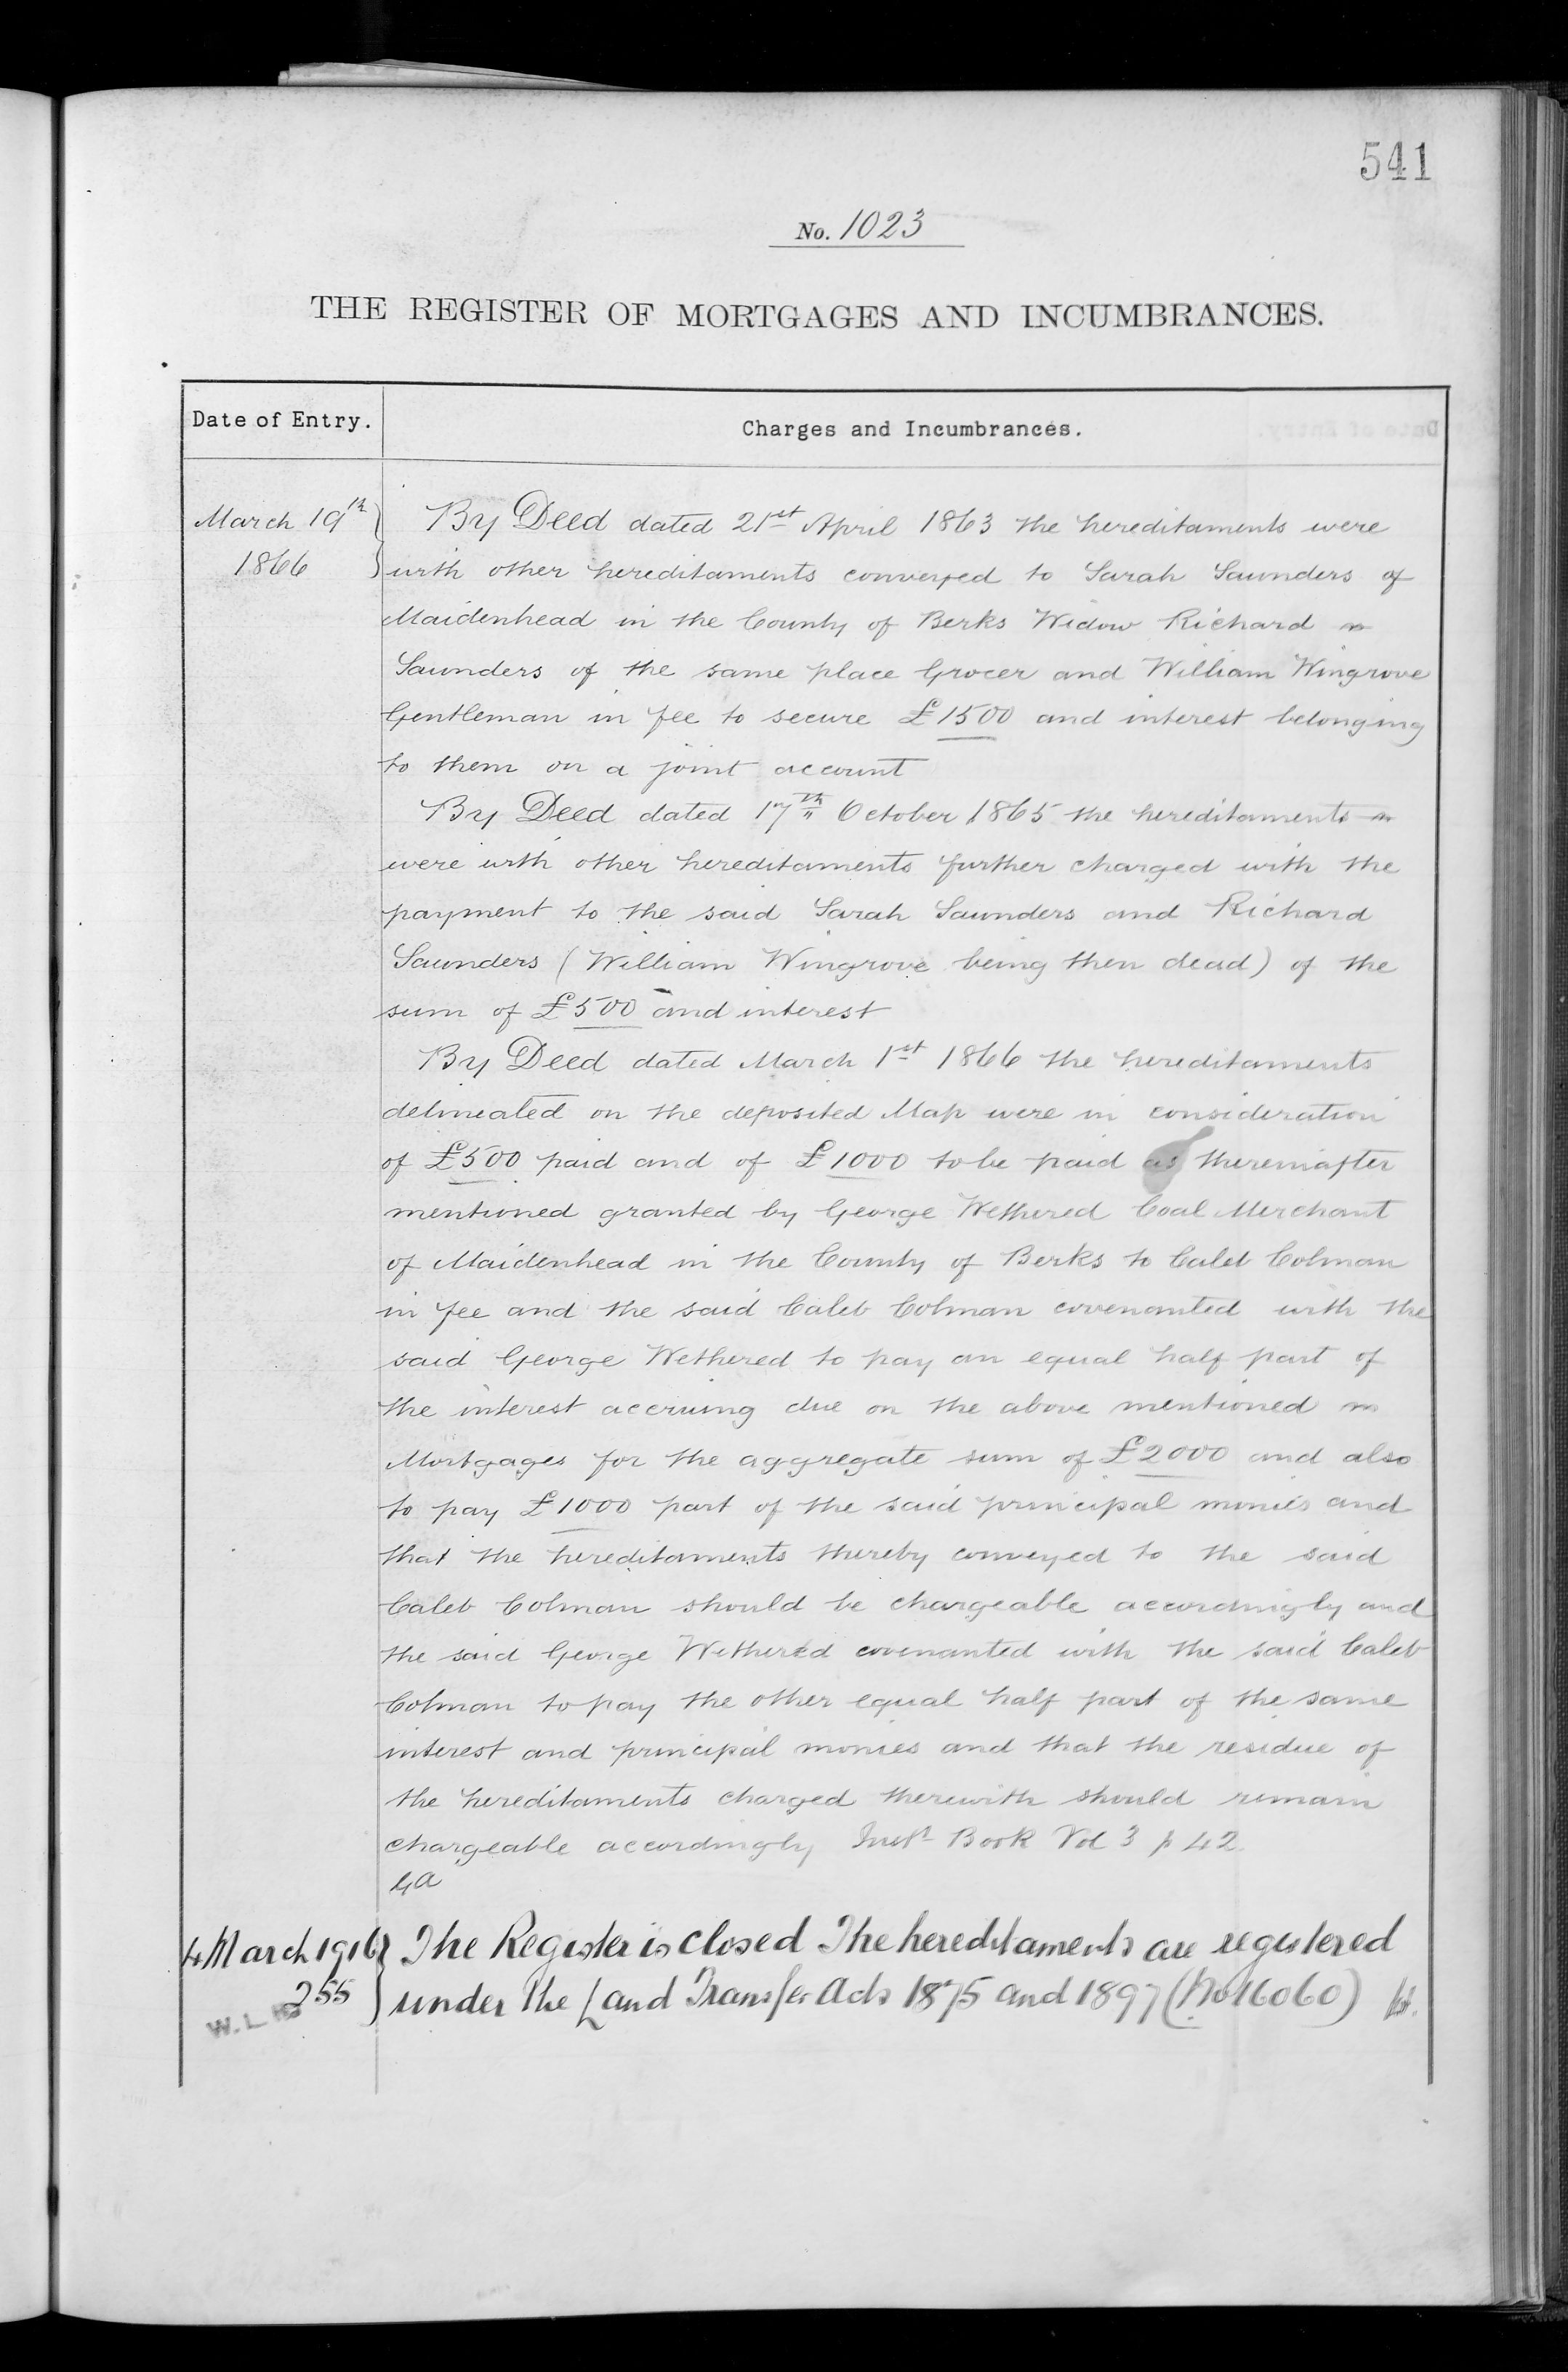 541
No. 1023
THE REGISTER OF MORTGAGES AND INCUMBRANCES.
Date of Entry.
Charges and Incumbrances.
March 19th
1866
By Deed dated 21st April 1863 the hereditaments were
with other hereditaments conveyed to Sarah Saunders of
Maidenhead in the County of Berks Widow Richard
Saunders of the same place Grocer and William Wingrove
Gentleman in fee to secure £1500 and interest belonging
to them on a joint account
By Deed dated 17th October 1865 the hereditaments
were with other hereditaments further charged with the
payment to the said Sarah Saunders and Richard
Saunders (William Wingrove being then dead) of the
sum of £500 and interest
By Deed dated March 1st 1866 the hereditaments
delineated on the deposited Map were in consideration
of £500 paid and of £1000 to be paid as thereinafter
mentioned granted by George Wethered Coal Merchant
of Maidenhead in the County of Berks to Caleb Colman
in fee and the said Caleb Colman covenanted with the
said George Wethered to pay an equal half part of
the interest accruing due on the above mentioned
Mortgages for the aggregate sum of £2000 and also
to pay £1000 part of the said principal monies and
that the hereditaments thereby conveyed to the said
Caleb Colman should be chargeable accordingly and
the said George Wethered covenanted with the said Caleb
Colman to pay the other equal half part of the same
interest and principal monies and that the residue of
the hereditaments charged therewith should remain
chargeable accordingly Inst Book Vol 3 p 42
4 March 1916
255
The Register is closed The hereditaments are registered
under the Land Transfer Acts 1875 and 1897 (No 16060)